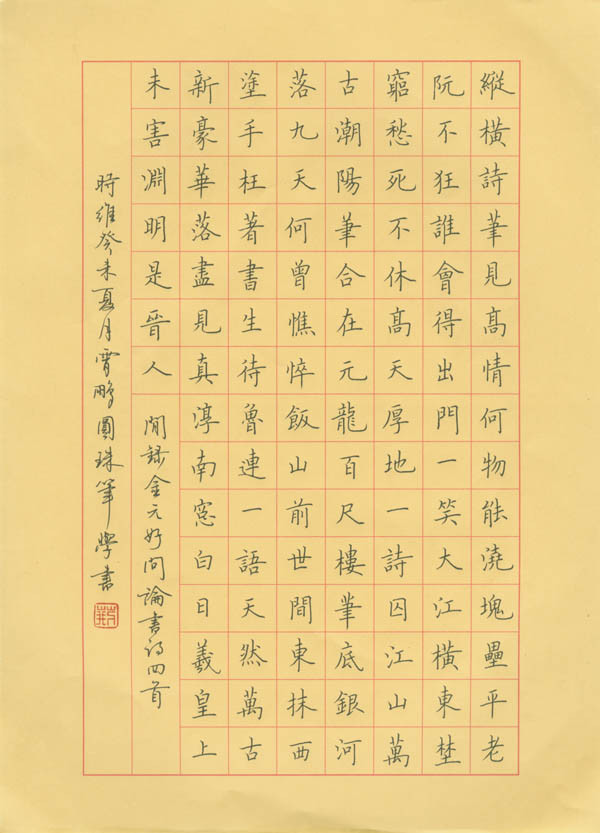 縱橫詩筆見髙情何物能澆塊壘平老
阮不狂誰會得出門一笑大江橫東埜
窮愁死不休髙天厚地一詩囚江山萬
古潮陽筆合在元龍百尺樓筆底銀河
落九天何曾憔悴飯山前世間東抹西
塗手枉著書生待魯連一語天然萬古
新豪華落盡見真淳南窓白日羲皇上
未害淵明是晉人 閒錄金元好问論書诗四首
時維癸未夏月霄鵬圓珠筆學書